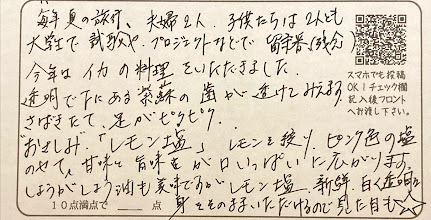 毎年夏の旅行、夫婦2人。子供たちは2人とも
大学生で試験や、プロジェクトなどで留守番(残念)
今年はイカの料理をいただきました。
透明で下にある紫蘇の葉が透けてみえます。
さばきたて、足がピクピク。
おさしみ、「レモン塩」レモンを絞り、ピンク色の塩
のせて、甘味と旨味が口いっぱいに広がります。
しょうがしょう油も美味ですがレモン塩、新鮮、白く透明な
身をそのままいただけるので見た目も☆
10点満点で 点
スマホでも投稿
OK!チェック欄
記入後フロント
へお渡し下さい。